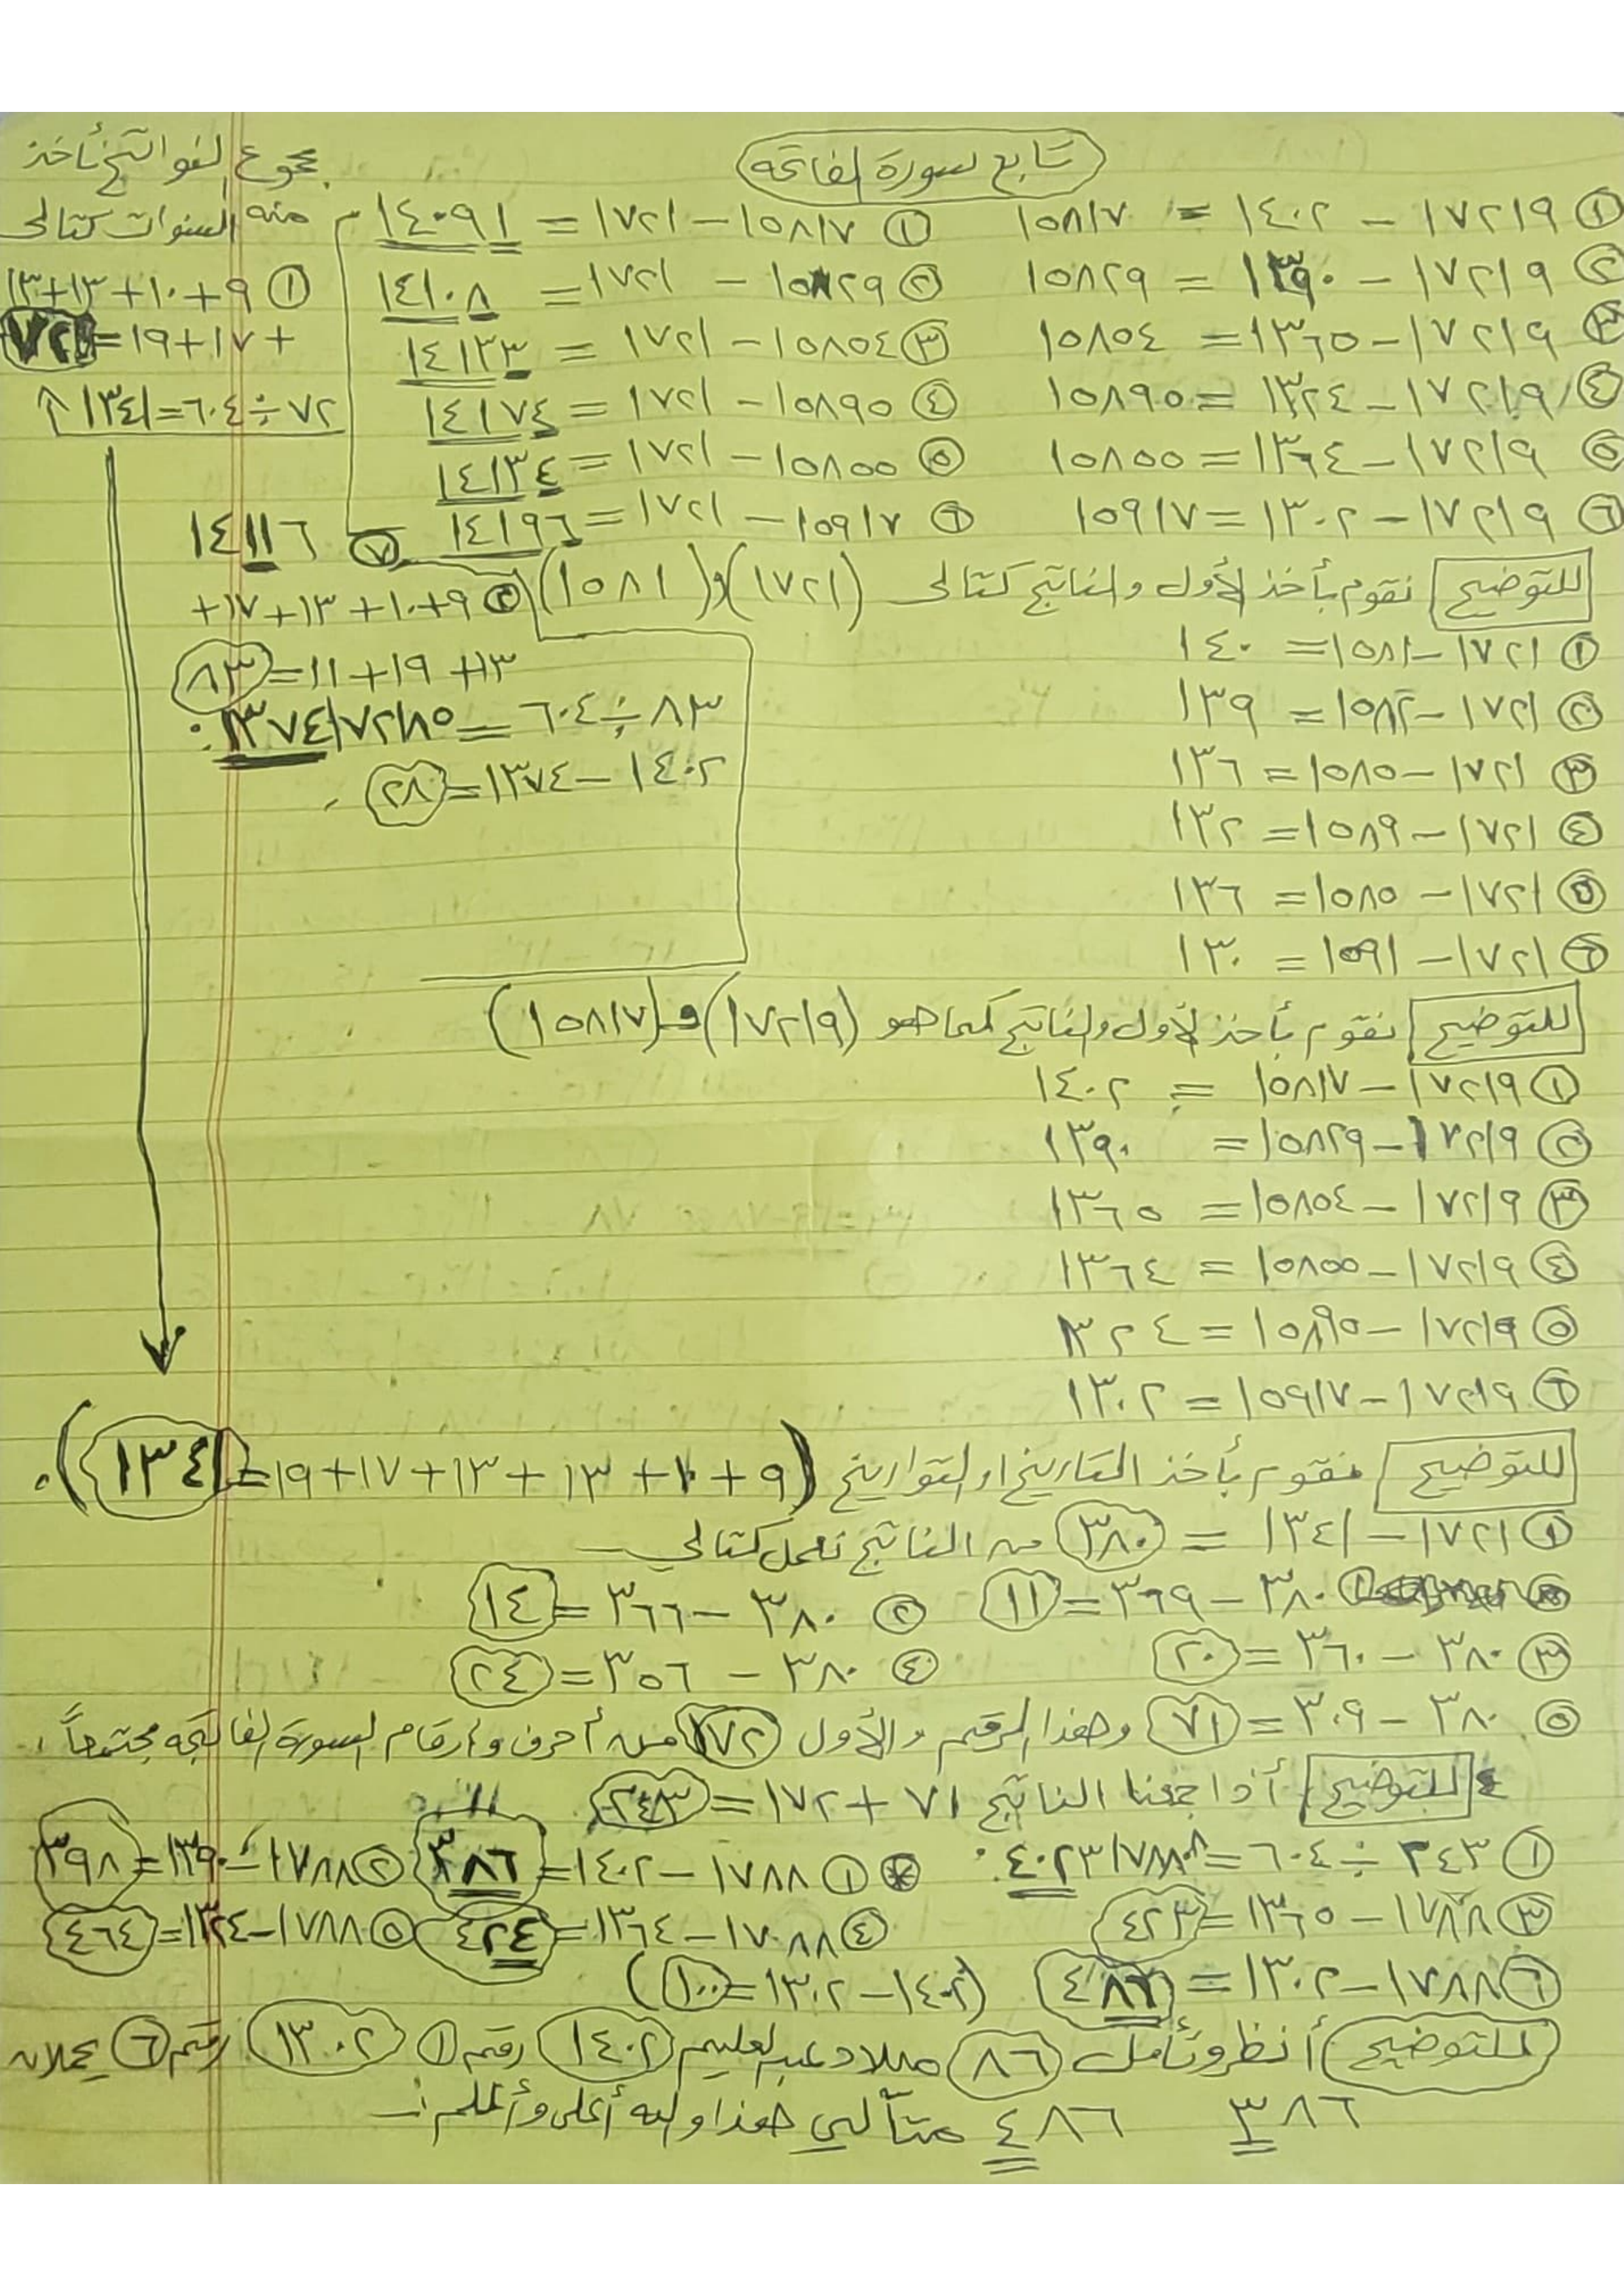 تابع سورة الفاتحه
① ١٧٢١٩ – ١٤٠٢ = ١٥٨١٧
② ١٧٢١٩ – ١٣٩٠ = ١٥٨٢٩
③ ١٧٢١٩ – ١٣٦٥ = ١٥٨٥٤
④ ١٧٢١٩ – ١٣٢٤ = ١٥٨٩٥
⑤ ١٧٢١٩ – ١٣٦٤ = ١٥٨٥٥
⑥ ١٧٢١٩ – ١٣٠٢ = ١٥٩١٧
① ١٥٨١٧ – ١٧٢١ = ١٤٠٩١
② ١٥٨٢٩ – ١٧٢١ = ١٤١٠٨
③ ١٥٨٥٤ – ١٧٢١ = ١٤١٣٣
④ ١٥٨٩٥ – ١٧٢١ = ١٤١٧٤
⑤ ١٥٨٥٥ – ١٧٢١ = ١٤١٣٤
⑥ ١٥٩١٧ – ١٧٢١ = ١٤١٩٦
⑦ ١٤١١٦
مجموع الفواتح نأخذ
منه السنوات كتالى
① ٩+١٠+١٣+١٣
+١٧+١٩=٧٢
٧٢÷٦٠٤=١٣٤١
② ٩+١٠+١٣+١٧+
١٣+١٩+١١=٨٣
٨٣÷٦٠٤=١٣٧٤١٧٢١٨٥
١٤٠٢–١٣٧٤=٢٨
للتوضيح نقوم بأخذ الأول والناتج كتالى (١٧٢١)و(١٥٨١)
① ١٧٢١–١٥٨١= ١٤٠
② ١٧٢١–١٥٨٢= ١٣٩
③ ١٧٢١–١٥٨٥= ١٣٦
④ ١٧٢١–١٥٨٩= ١٣٢
⑤ ١٧٢١–١٥٨٥= ١٣٦
⑥ ١٧٢١–١٥٩١= ١٣٠
للتوضيح نقوم بأخذ الأول والناتج كما هو (١٧٢١٩)و(١٥٨١٧)
① ١٧٢١٩–١٥٨١٧ = ١٤٠٢
② ١٧٢١٩–١٥٨٢٩= ١٣٩٠
③ ١٧٢١٩–١٥٨٥٤= ١٣٦٥
④ ١٧٢١٩–١٥٨٥٥= ١٣٦٤
⑤ ١٧٢١٩–١٥٨٩٥= ١٣٢٤
⑥ ١٧٢١٩–١٥٩١٧= ١٣٠٢
للتوضيح نقوم بأخذ التاريخ او التواريخ (٩+١٠+١٣+١٣+١٧+١٩=١٣٤١).
① ١٧٢١–١٣٤١ = ٣٨٠ من الناتج نعمل كتالي
① ٣٨٠–٣٦٩=١١ ② ٣٨٠–٣٦٦=١٤
③ ٣٨٠–٣٦٠=٢٠ ④ ٣٨٠–٣٥٦=٢٤
⑤ ٣٨٠–٣٠٩=٧١ وهذا الرقم والأول ١٧٢ من أحرف وارقام السورة الفاتحه مجتمعاً.
للتوضيح أذا جمعنا الناتج ٧١+١٧٢=٢٤٣
① ٢٤٣÷٦٠٤=٤٠٢٣١٧٨٨٠٨. ① ١٧٨٨–١٤٠٢=٣٨٦ ② ١٧٨٨–١٣٩٠=٣٩٨
③ ١٧٨٨–١٣٦٥=٤٢٣ ④ ١٧٨٨–١٣٦٤=٤٢٤ ⑤ ١٧٨٨–١٣٢٤=٤٦٤
⑥ ١٧٨٨–١٣٠٢=٤٨٦ (١٤٠٢–١٣٠٢=١٠٠)
للتوضيح أنظر وتأمل ٨٦ ميلاد عبدالعليم ١٤٠٢ رقم ① ١٣٠٢ رقم ⑥ يحملان
٣٨٦ ٤٨٦ متتالي هذا والله أعلى وأعلم